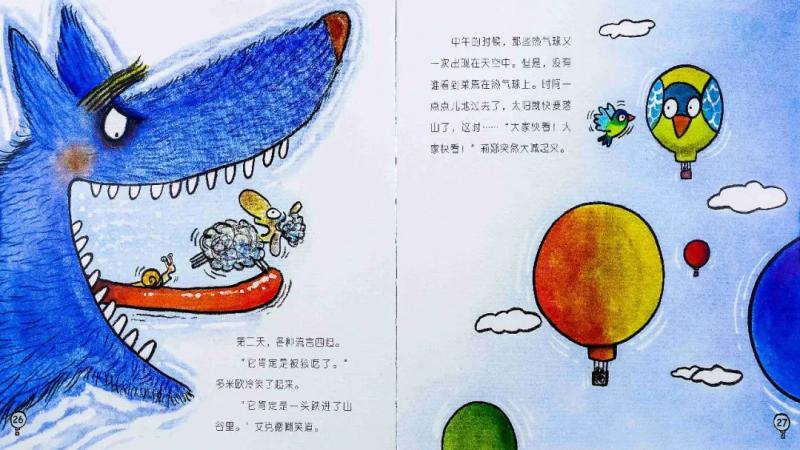 第二天，各种流言四起。
“它肯定是被狼吃了。”
多米欧冷笑了起来。
“它肯定是一头跌进了山
谷里。”艾克嘟嘟笑道。
26
中午的时候，那些热气球又
一次出现在天空中。但是，没有
谁看到莱焉在热气球上。时间一
点点儿地过去了，太阳就快要落
山了，这时……“大家快看！大
家快看！”莉娜突然大喊起来。
27